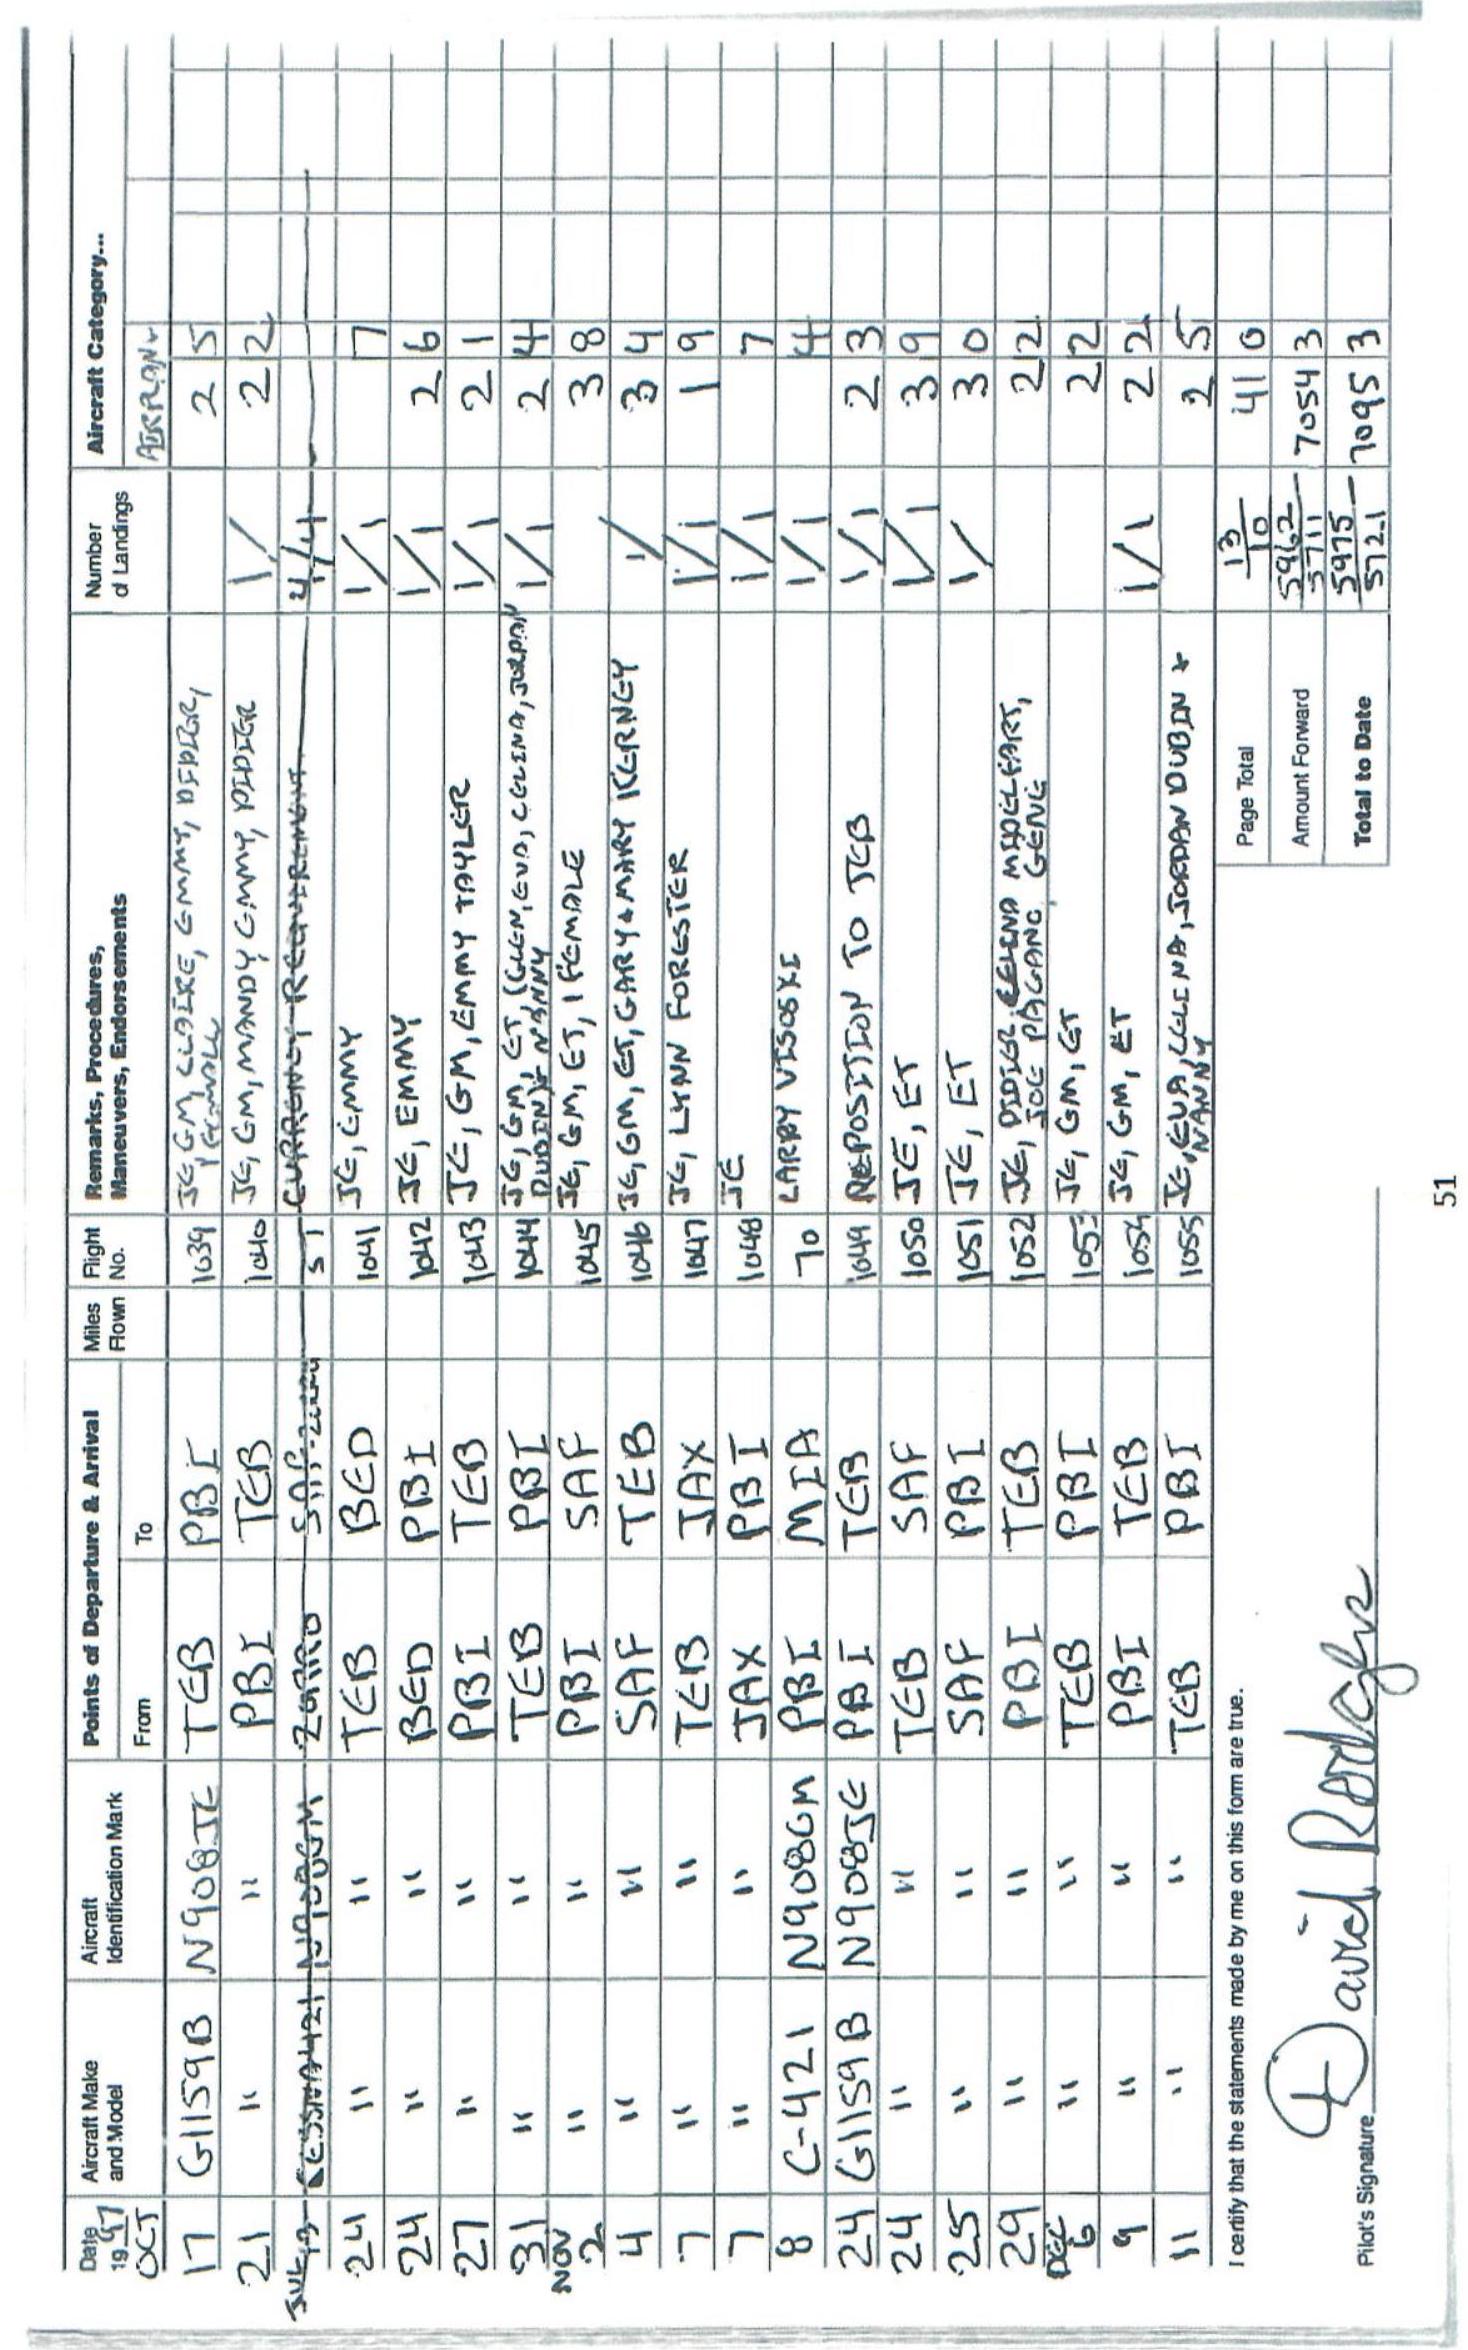 Date 19 97 Aircraft Make and Model Aircraft Identification Mark Points of Departure & Arrival Miles Flown Flight No. Remarks, Procedures, Maneuvers, Endorsements Number of Landings Aircraft Category...
OCT From To
17 G1159B N908JE TEB PBI 1039 JE, GM, CLAIRE, EMMY, DIDIER, 1 FEMALE 2 5
21 " " PBI TEB 1040 JE, GM, MANDY, EMMY, DIDIER 1/ 2 2
CESSNA421 N908GM ZORRO SAF 51 CURRENCY REQUIREMENT 4/4
24 " " TEB BED 1041 JE, EMMY 1/1 7
24 " " BED PBI 1042 JE, EMMY 1/1 2 6
27 " " PBI TEB 1043 JE, GM, EMMY TAYLER 1/1 2 1
31 " " TEB PBI 1044 JE, GM, ET, (GLEN, EVA, CELINA, JORDAN DUBIN) + NANNY 1/1 2 4
NOV 2 " " PBI SAF 1045 JE, GM, ET, 1 FEMALE 3 8
4 " " SAF TEB 1046 JE, GM, ET, GARY & MARY KERNEY 1/ 3 4
7 " " TEB JAX 1047 JE, LYNN FORESTER 1/1 1 9
7 " " JAX PBI 1048 JE 1/1 7
8 C-421 N908GM PBI MIA 70 LARRY VISOSKI 1/1 4
24 G1159B N908JE PBI TEB 1049 REPOSITION TO TEB 1/1 2 3
24 " " TEB SAF 1050 JE, ET 1/1 3 9
25 " " SAF PBI 1051 JE, ET 1/ 3 0
29 " " PBI TEB 1052 JE, DIDIER, CELINA MIDELFART, JOE PAGANO, GENE 2 2
DEC 6 " " TEB PBI 1053 JE, GM, ET 2 2
9 " " PBI TEB 1054 JE, GM, ET 1/1 2 2
11 " " TEB PBI 1055 JE, EVA, CELINA, JORDAN DUBIN + NANNY 2 5
I certify that the statements made by me on this form are true.
Page Total 13/10 41 0
Amount Forward 5962/5711 7054 3
Total to Date 5975/5721 7095 3
Pilot's Signature David Rodgers
51